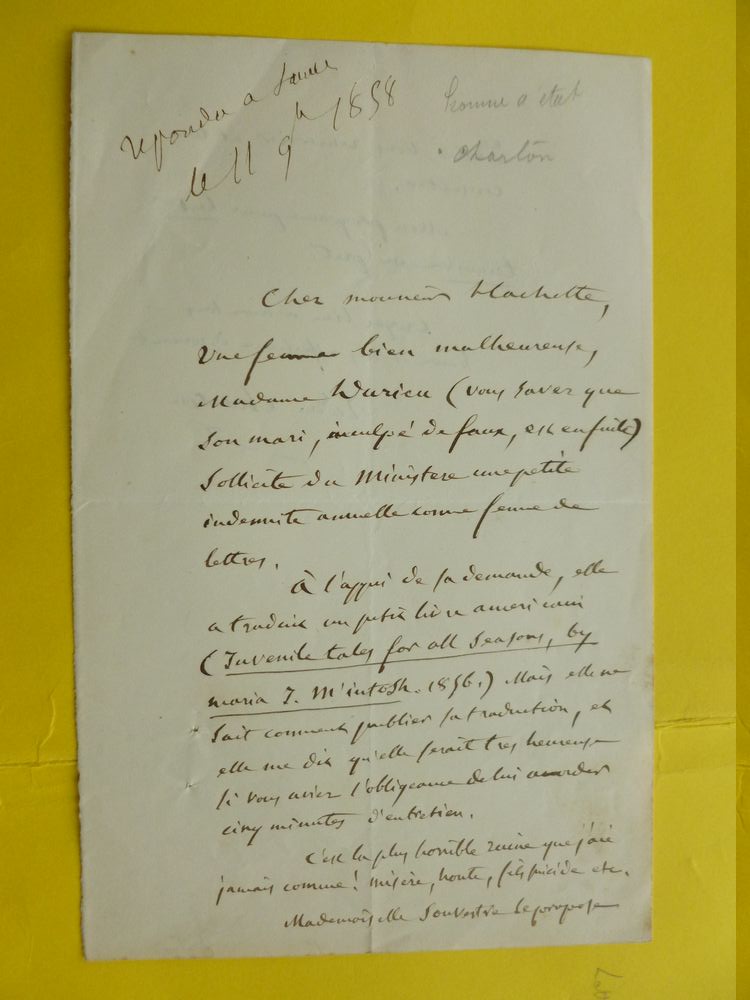 repondu a
le 11 9b 1858
homme d'état
Charton
Cher monsieur Hachette,
Une femme bien malheureuse,
Madame Durieu (vous savez que
son mari, inculpé de faux, est en fuite)
Sollicite du Ministère une petite
indemnité annuelle comme femme de
lettres.
À l'appui de sa demande, elle
a traduit un petit livre américain
(Juvenile tales for all Seasons, by
maria J. M'intosh. 1856.) Mais elle ne
sait comment publier sa traduction, et
elle me dit qu'elle serait très heureuse
si vous aviez l'obligeance de lui accorder
cinq minutes d'entretien.
C'est la plus horrible ruine que j'aie
jamais connue! misère, honte, fils suicidé etc.
Mademoiselle Souvestre se propose